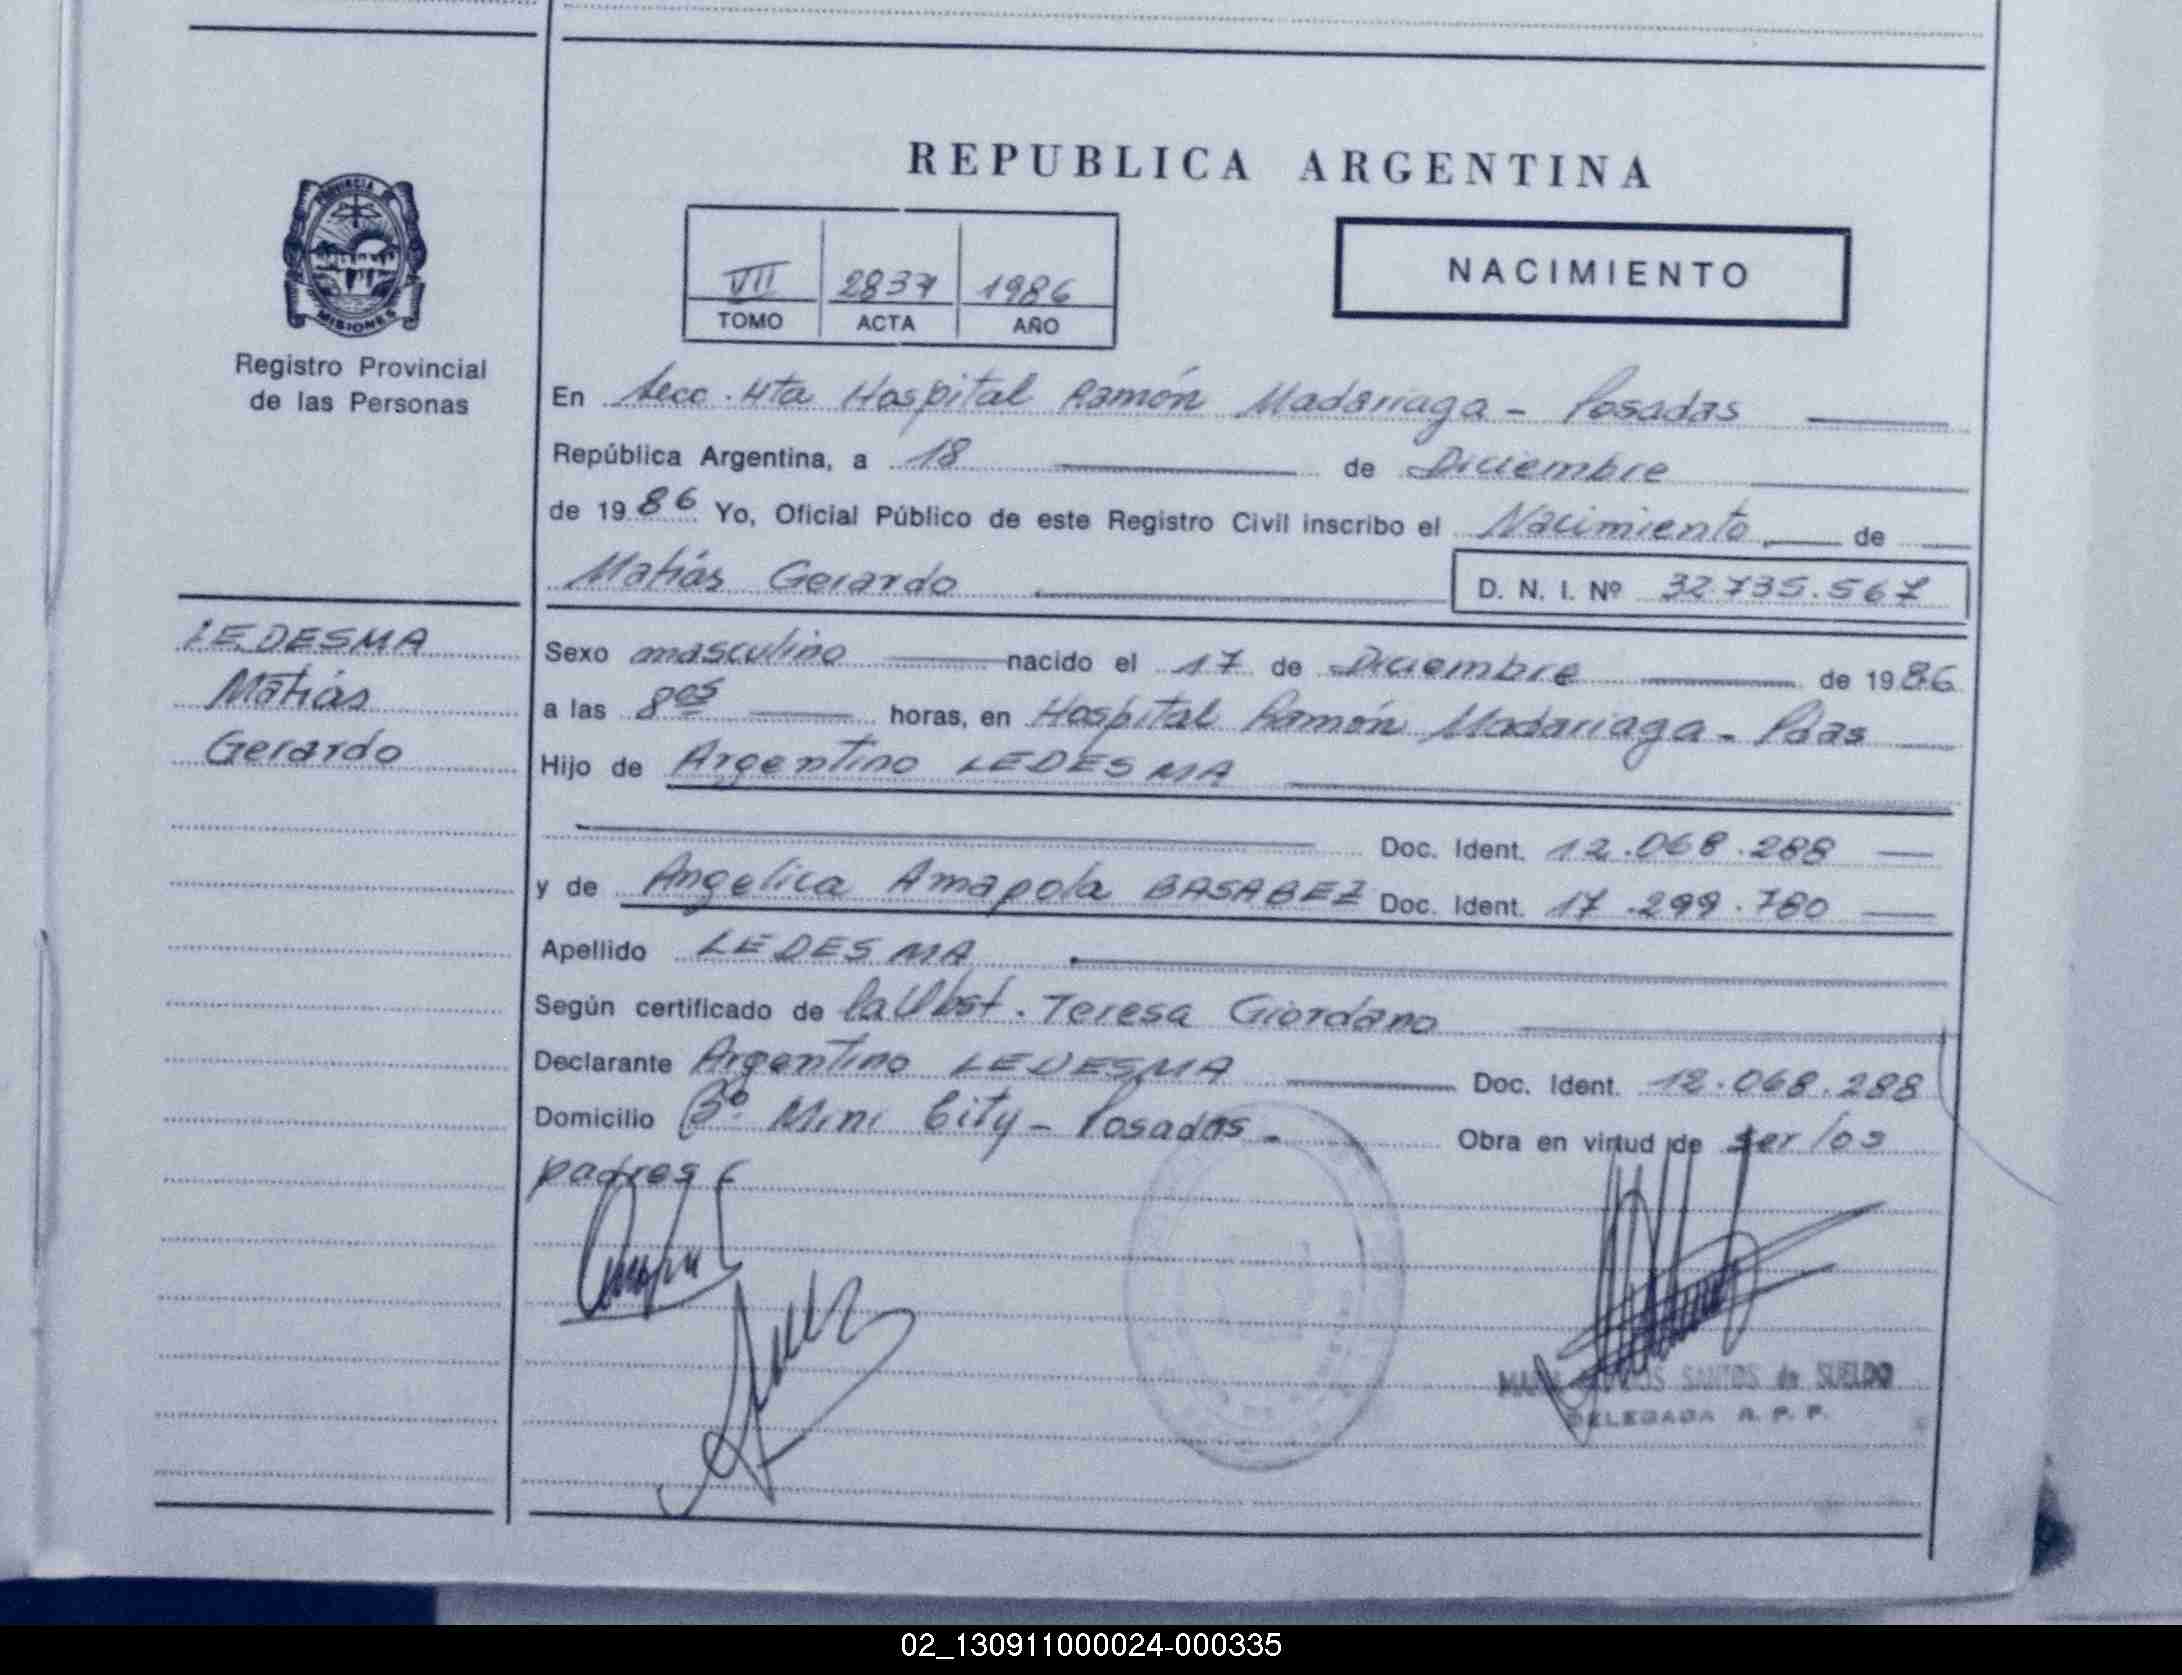 REPUBLICA ARGENTINA
PROVINCIA DE
MISIONES
Registro Provincial
de las Personas
VII 2837 1986
TOMO ACTA AÑO
NACIMIENTO
En Secc. 4ta Hospital Ramón Madariaga - Posadas
República Argentina, a 18 de Diciembre
de 1986 Yo, Oficial Público de este Registro Civil inscribo el Nacimiento de
Matías Gerardo D. N. I. Nº 32.735.567
LEDESMA
Matías
Gerardo
Sexo masculino nacido el 17 de Diciembre de 1986
a las 8 05 horas, en Hospital Ramón Madariaga - Pdas
Hijo de Argentino LEDESMA
Doc. Ident. 12.068.288
y de Angelica Amapola BASABEZ Doc. Ident. 17.299.780
Apellido LEDESMA
Según certificado de la Obst. Teresa Giordano
Declarante Argentino LEDESMA Doc. Ident. 12.068.288
Domicilio Bº Mini City - Posadas - Obra en virtud de ser los
padres
SANTOS de SUELDO
DELEGADA R. P. P.
02_130911000024-000335